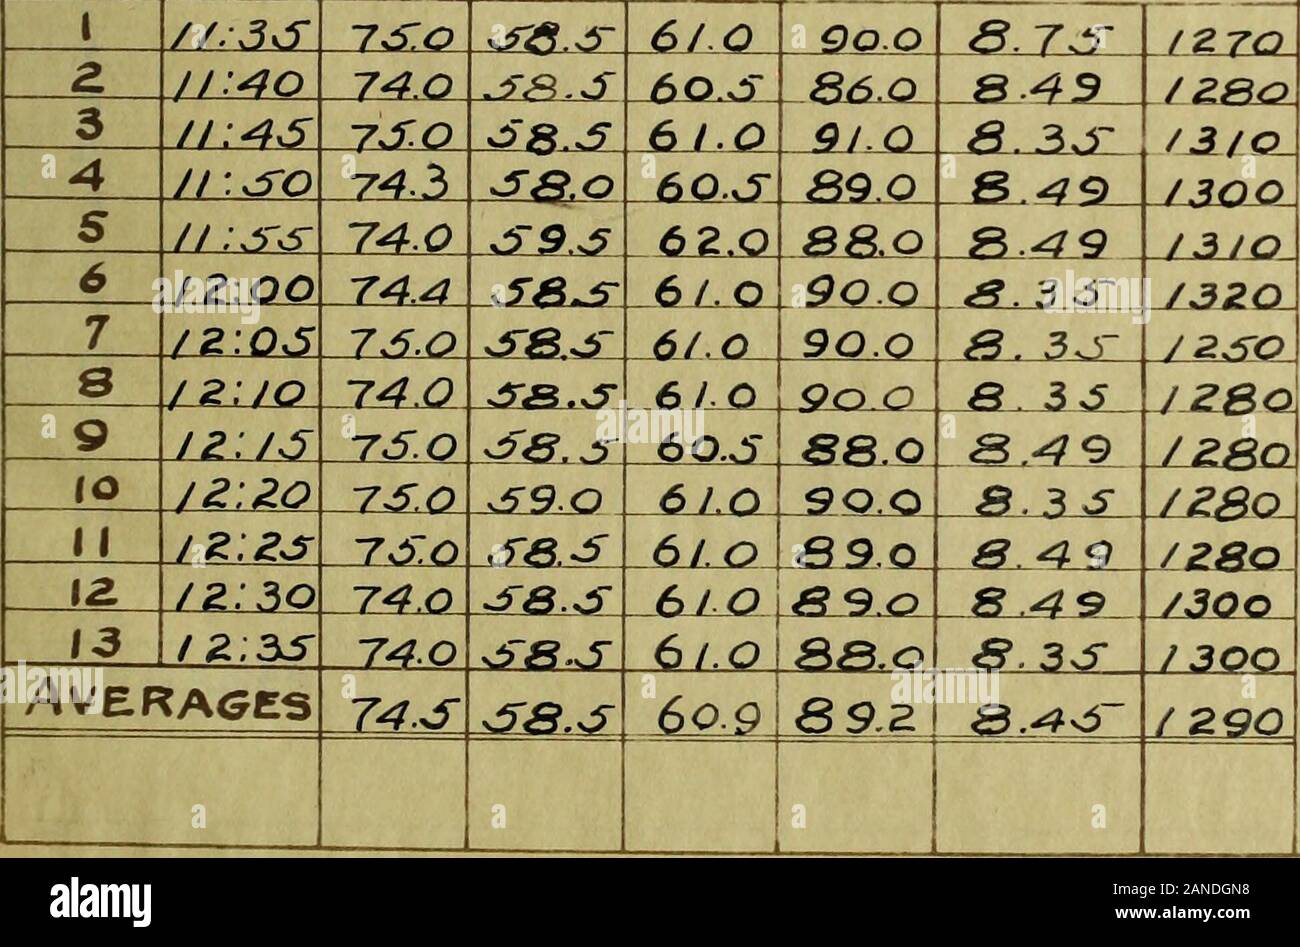 1 11:35 75.0 58.5 61.0 90.0 8.75 1270
2 11:40 74.0 58.5 60.5 86.0 8.49 1280
3 11:45 75.0 58.5 61.0 91.0 8.35 1310
4 11:50 74.3 58.0 60.5 89.0 8.49 1300
5 11:55 74.0 59.5 62.0 88.0 8.49 1310
6 12:00 74.4 58.5 61.0 90.0 8.35 1320
7 12:05 75.0 58.5 61.0 90.0 8.35 1250
8 12:10 74.0 58.5 61.0 90.0 8.35 1280
9 12:15 75.0 58.5 60.5 88.0 8.49 1280
10 12:20 75.0 59.0 61.0 90.0 8.35 1280
11 12:25 75.0 58.5 61.0 89.0 8.49 1280
12 12:30 74.0 58.5 61.0 89.0 8.49 1300
13 12:35 74.0 58.5 61.0 88.0 8.35 1300
AVERAGES 74.5 58.5 60.9 89.2 8.45 1290
alamy
Image ID: 2ANDGN8
www.alamy.com